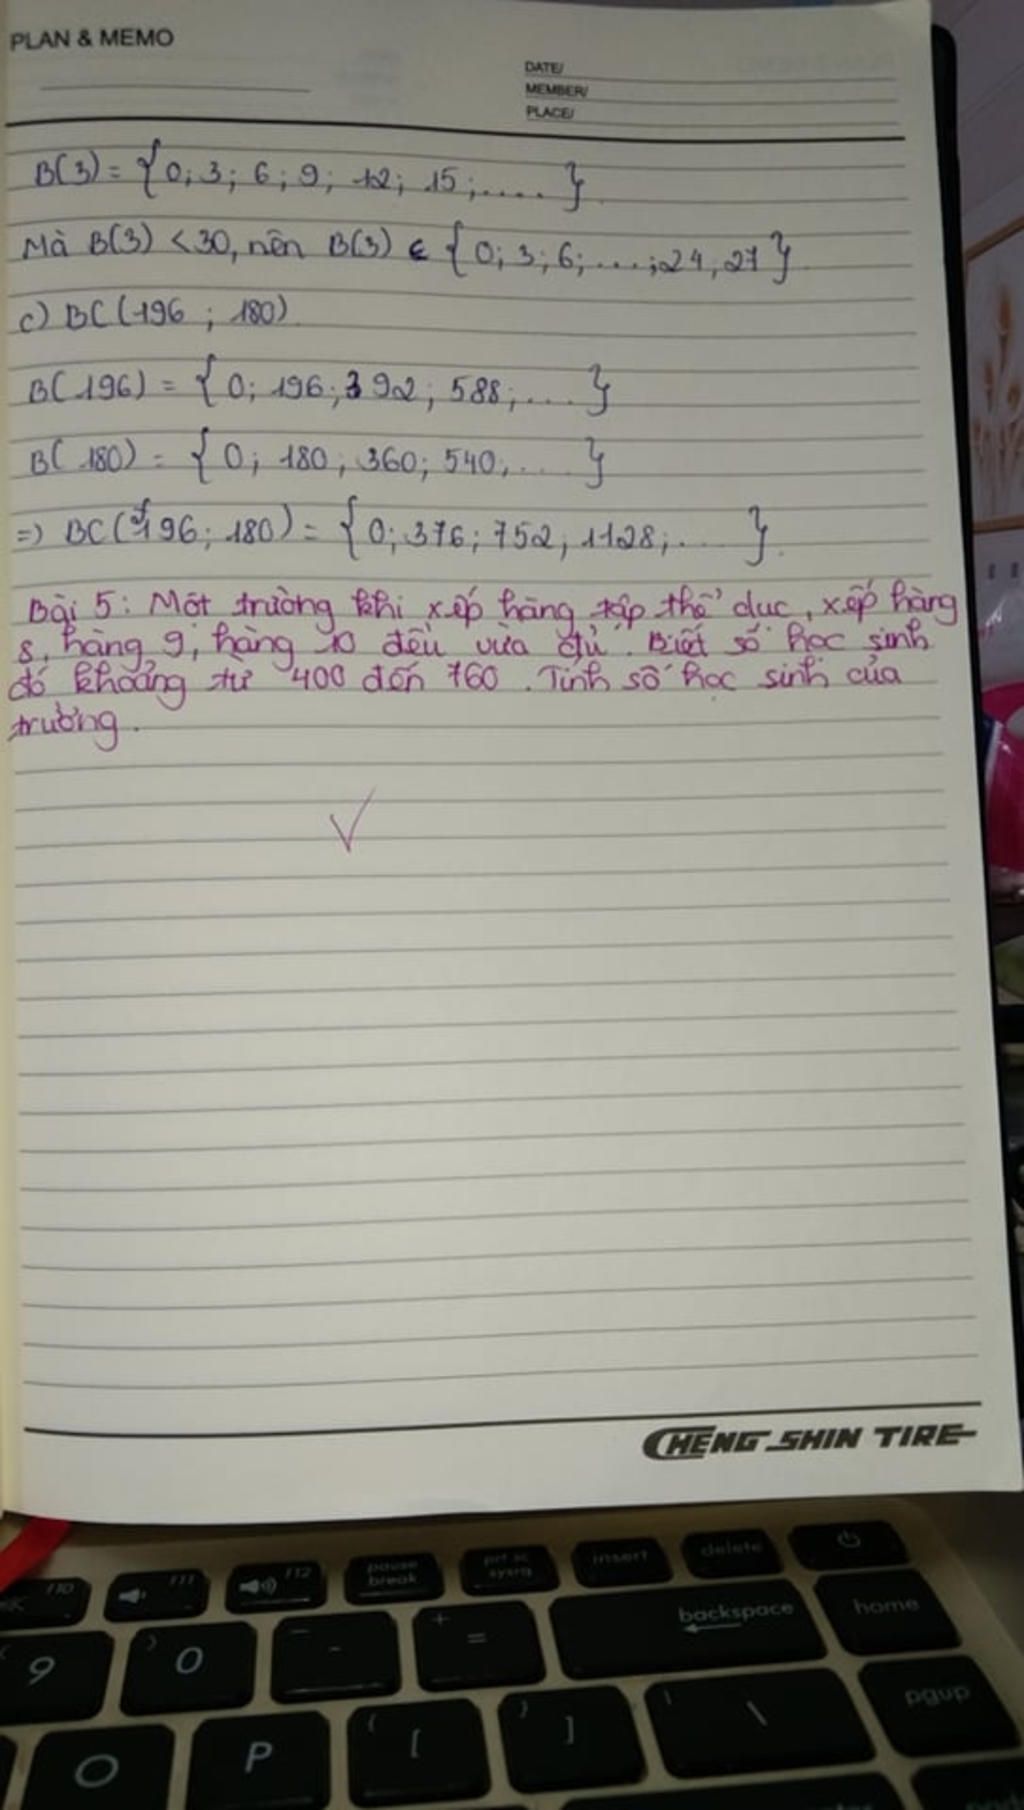 PLAN & MEMO
DATE/
MEMBER/
PLACE/
B(3) = {0; 3; 6; 9; 12; 15; .... }
Mà B(3) < 30, nên B(3) ∈ {0; 3; 6; ...; 24; 27}
c) BC(196 ; 180)
B(196) = {0; 196; 392; 588; ... }
B(180) = {0; 180; 360; 540; ... }
=) BC(196; 180) = {0; 376; 752; 1128; ... }
Bài 5: Một trường khi xếp hàng tập thể dục, xếp hàng
8, hàng 9, hàng 10 đều vừa đủ. Biết số học sinh
đó khoảng từ 400 đến 760. Tính số học sinh của
trường.
CHENG SHIN TIRE
F10
F11
F12
pause
break
prt sc
sysrq
insert
delete
K
9
) 0
- -
+ =
backspace
home
O
P
{ [
} ]
| \
pgup